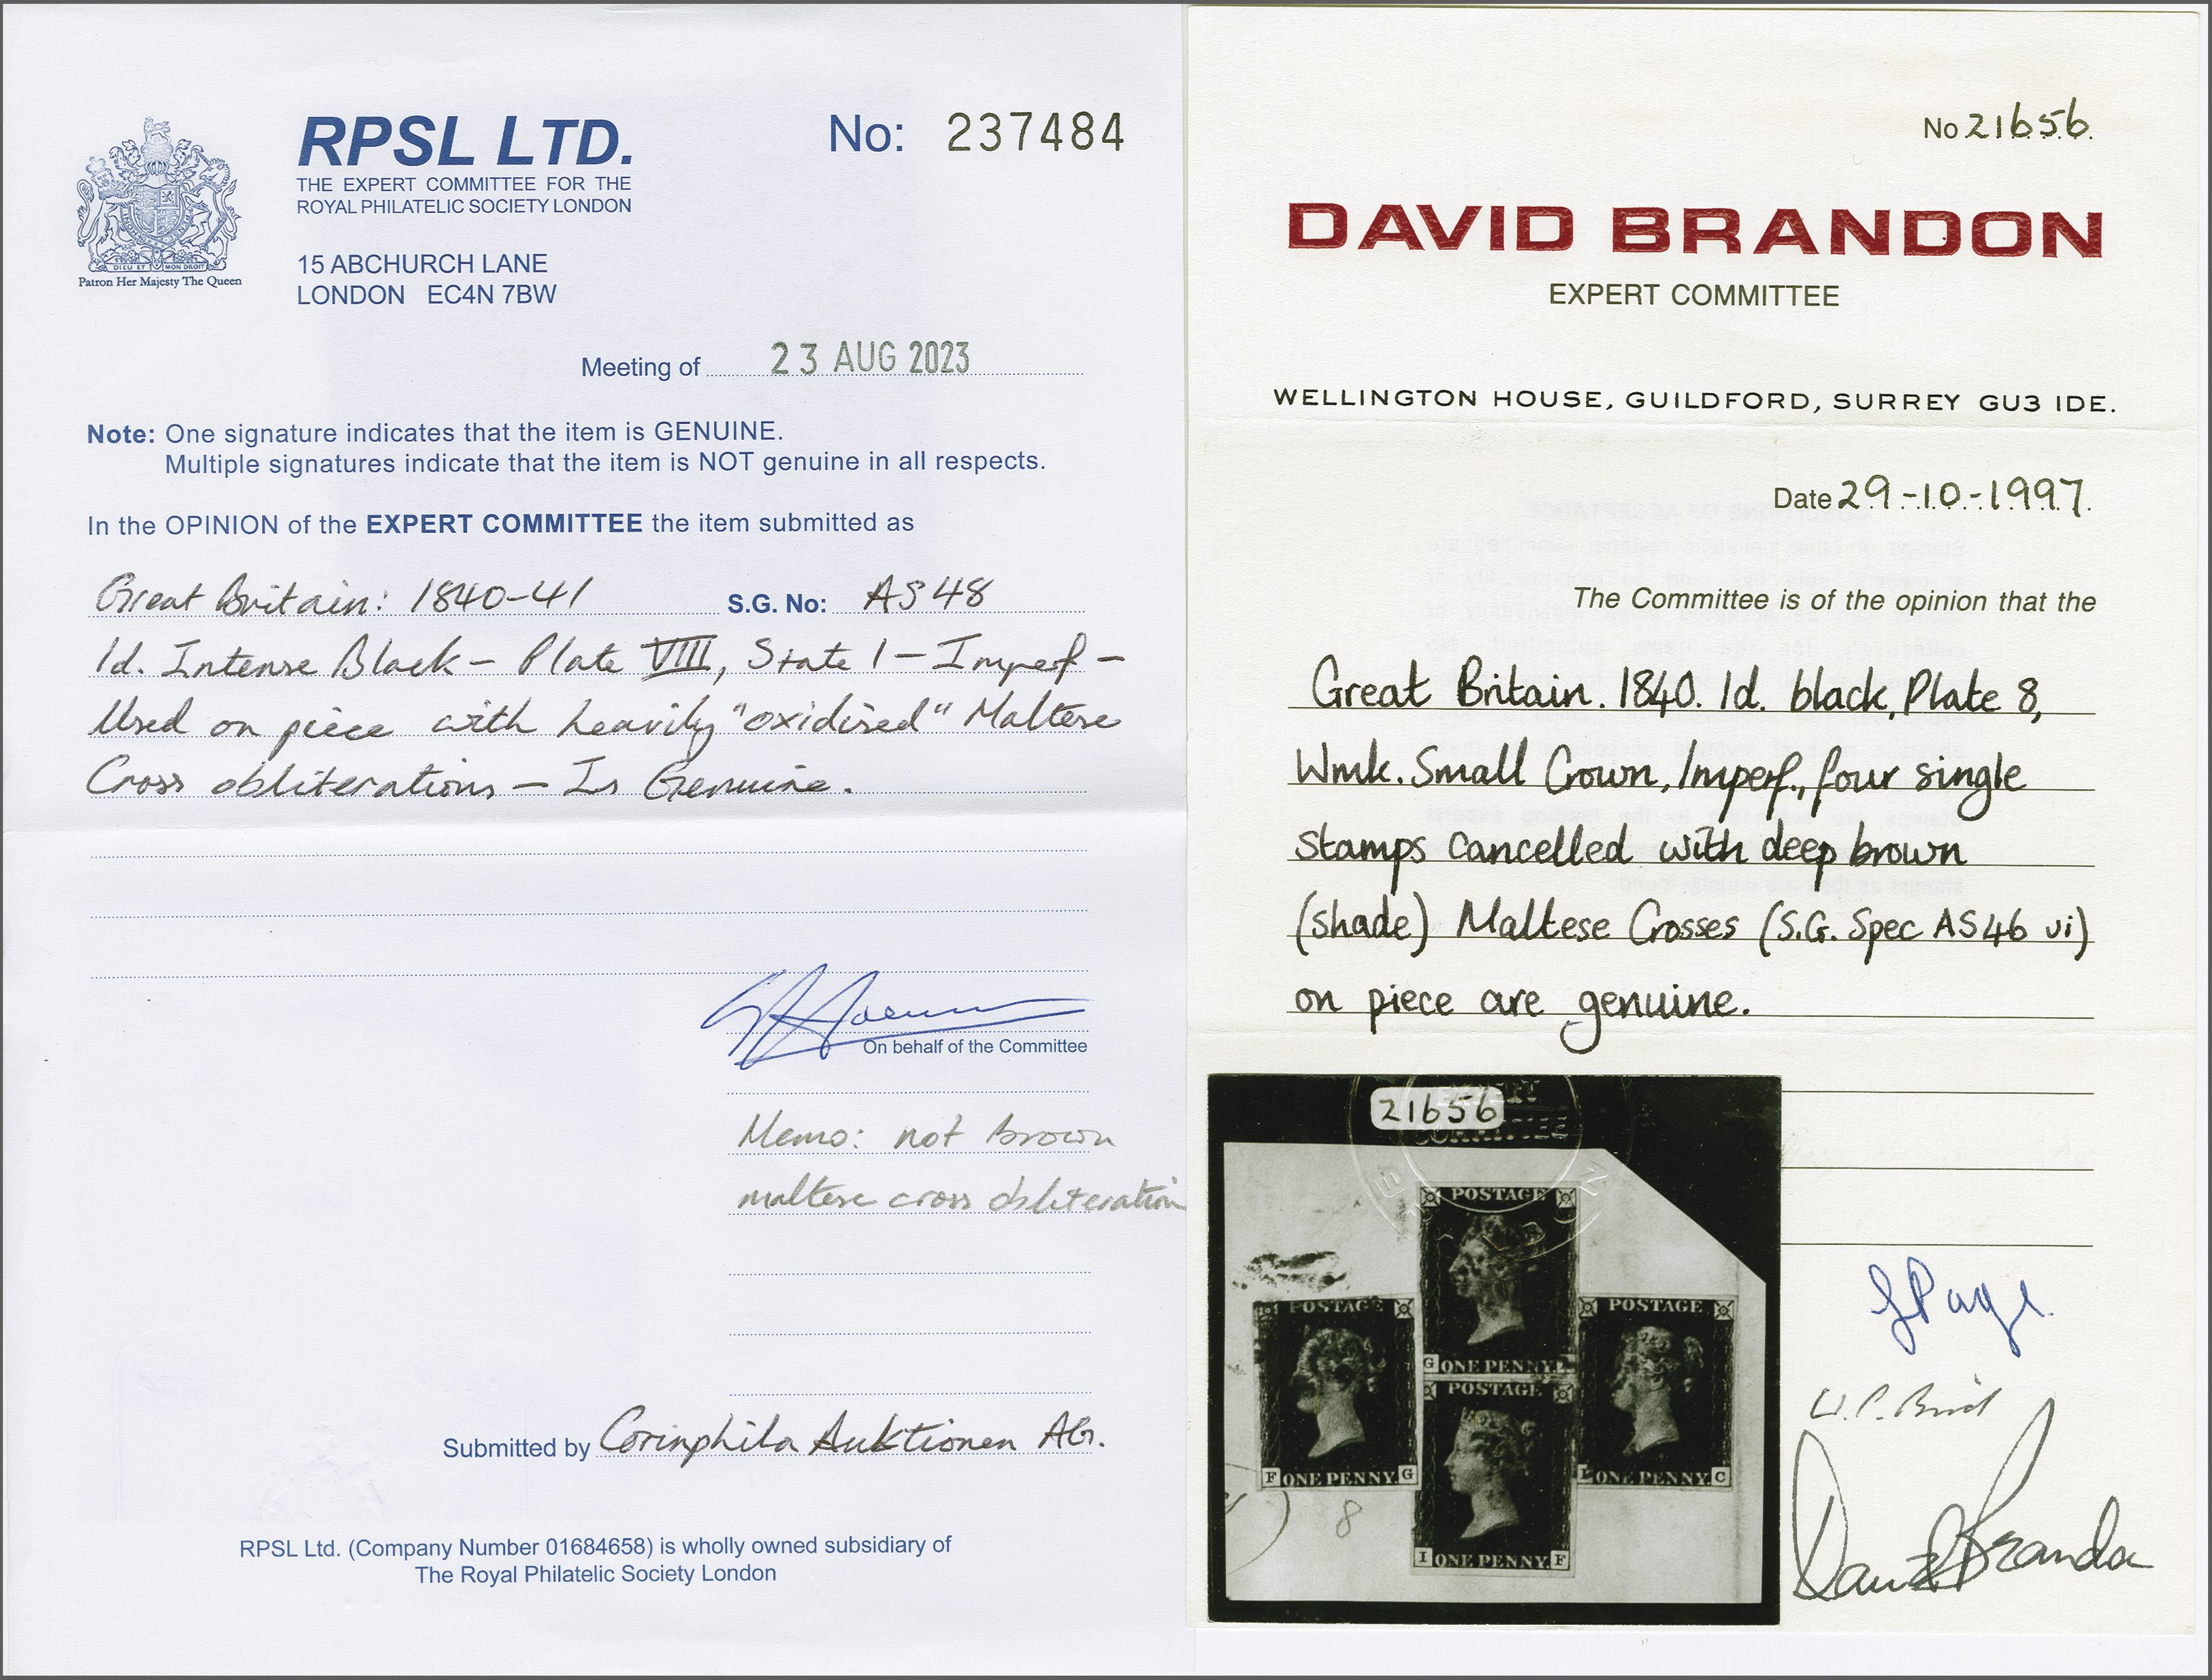 RPSL LTD.
THE EXPERT COMMITTEE FOR THE
ROYAL PHILATELIC SOCIETY LONDON
15 ABCHURCH LANE
LONDON EC4N 7BW
DIEU ET MON DROIT
Patron Her Majesty The Queen
No: 237484
Meeting of 23 AUG 2023
Note: One signature indicates that the item is GENUINE.
Multiple signatures indicate that the item is NOT genuine in all respects.
In the OPINION of the EXPERT COMMITTEE the item submitted as
Great Britain: 1840-41 S.G. No: AS48
1d. Intense Black - Plate VIII, State 1 - Imperf -
Used on piece with heavily "oxidised" Maltese
Cross obliterations - Is Genuine.
On behalf of the Committee
Memo: not brown
maltese cross obliteration
Submitted by Corinphila Auktionen AG.
RPSL Ltd. (Company Number 01684658) is wholly owned subsidiary of
The Royal Philatelic Society London
No 21656.
DAVID BRANDON
EXPERT COMMITTEE
WELLINGTON HOUSE, GUILDFORD, SURREY GU3 1DE.
Date 29-10-1997.
The Committee is of the opinion that the
Great Britain. 1840. 1d. black, Plate 8,
Wmk. Small Crown, Imperf., four single
stamps cancelled with deep brown
(shade) Maltese Crosses (S.G. Spec AS46 vi)
on piece are genuine.
21656
COMMITTEE
POSTAGE
G ONE PENNY. L
POSTAGE
F ONE PENNY. G
POSTAGE
ONE PENNY. C
POSTAGE
I ONE PENNY. F
8
David Brandon